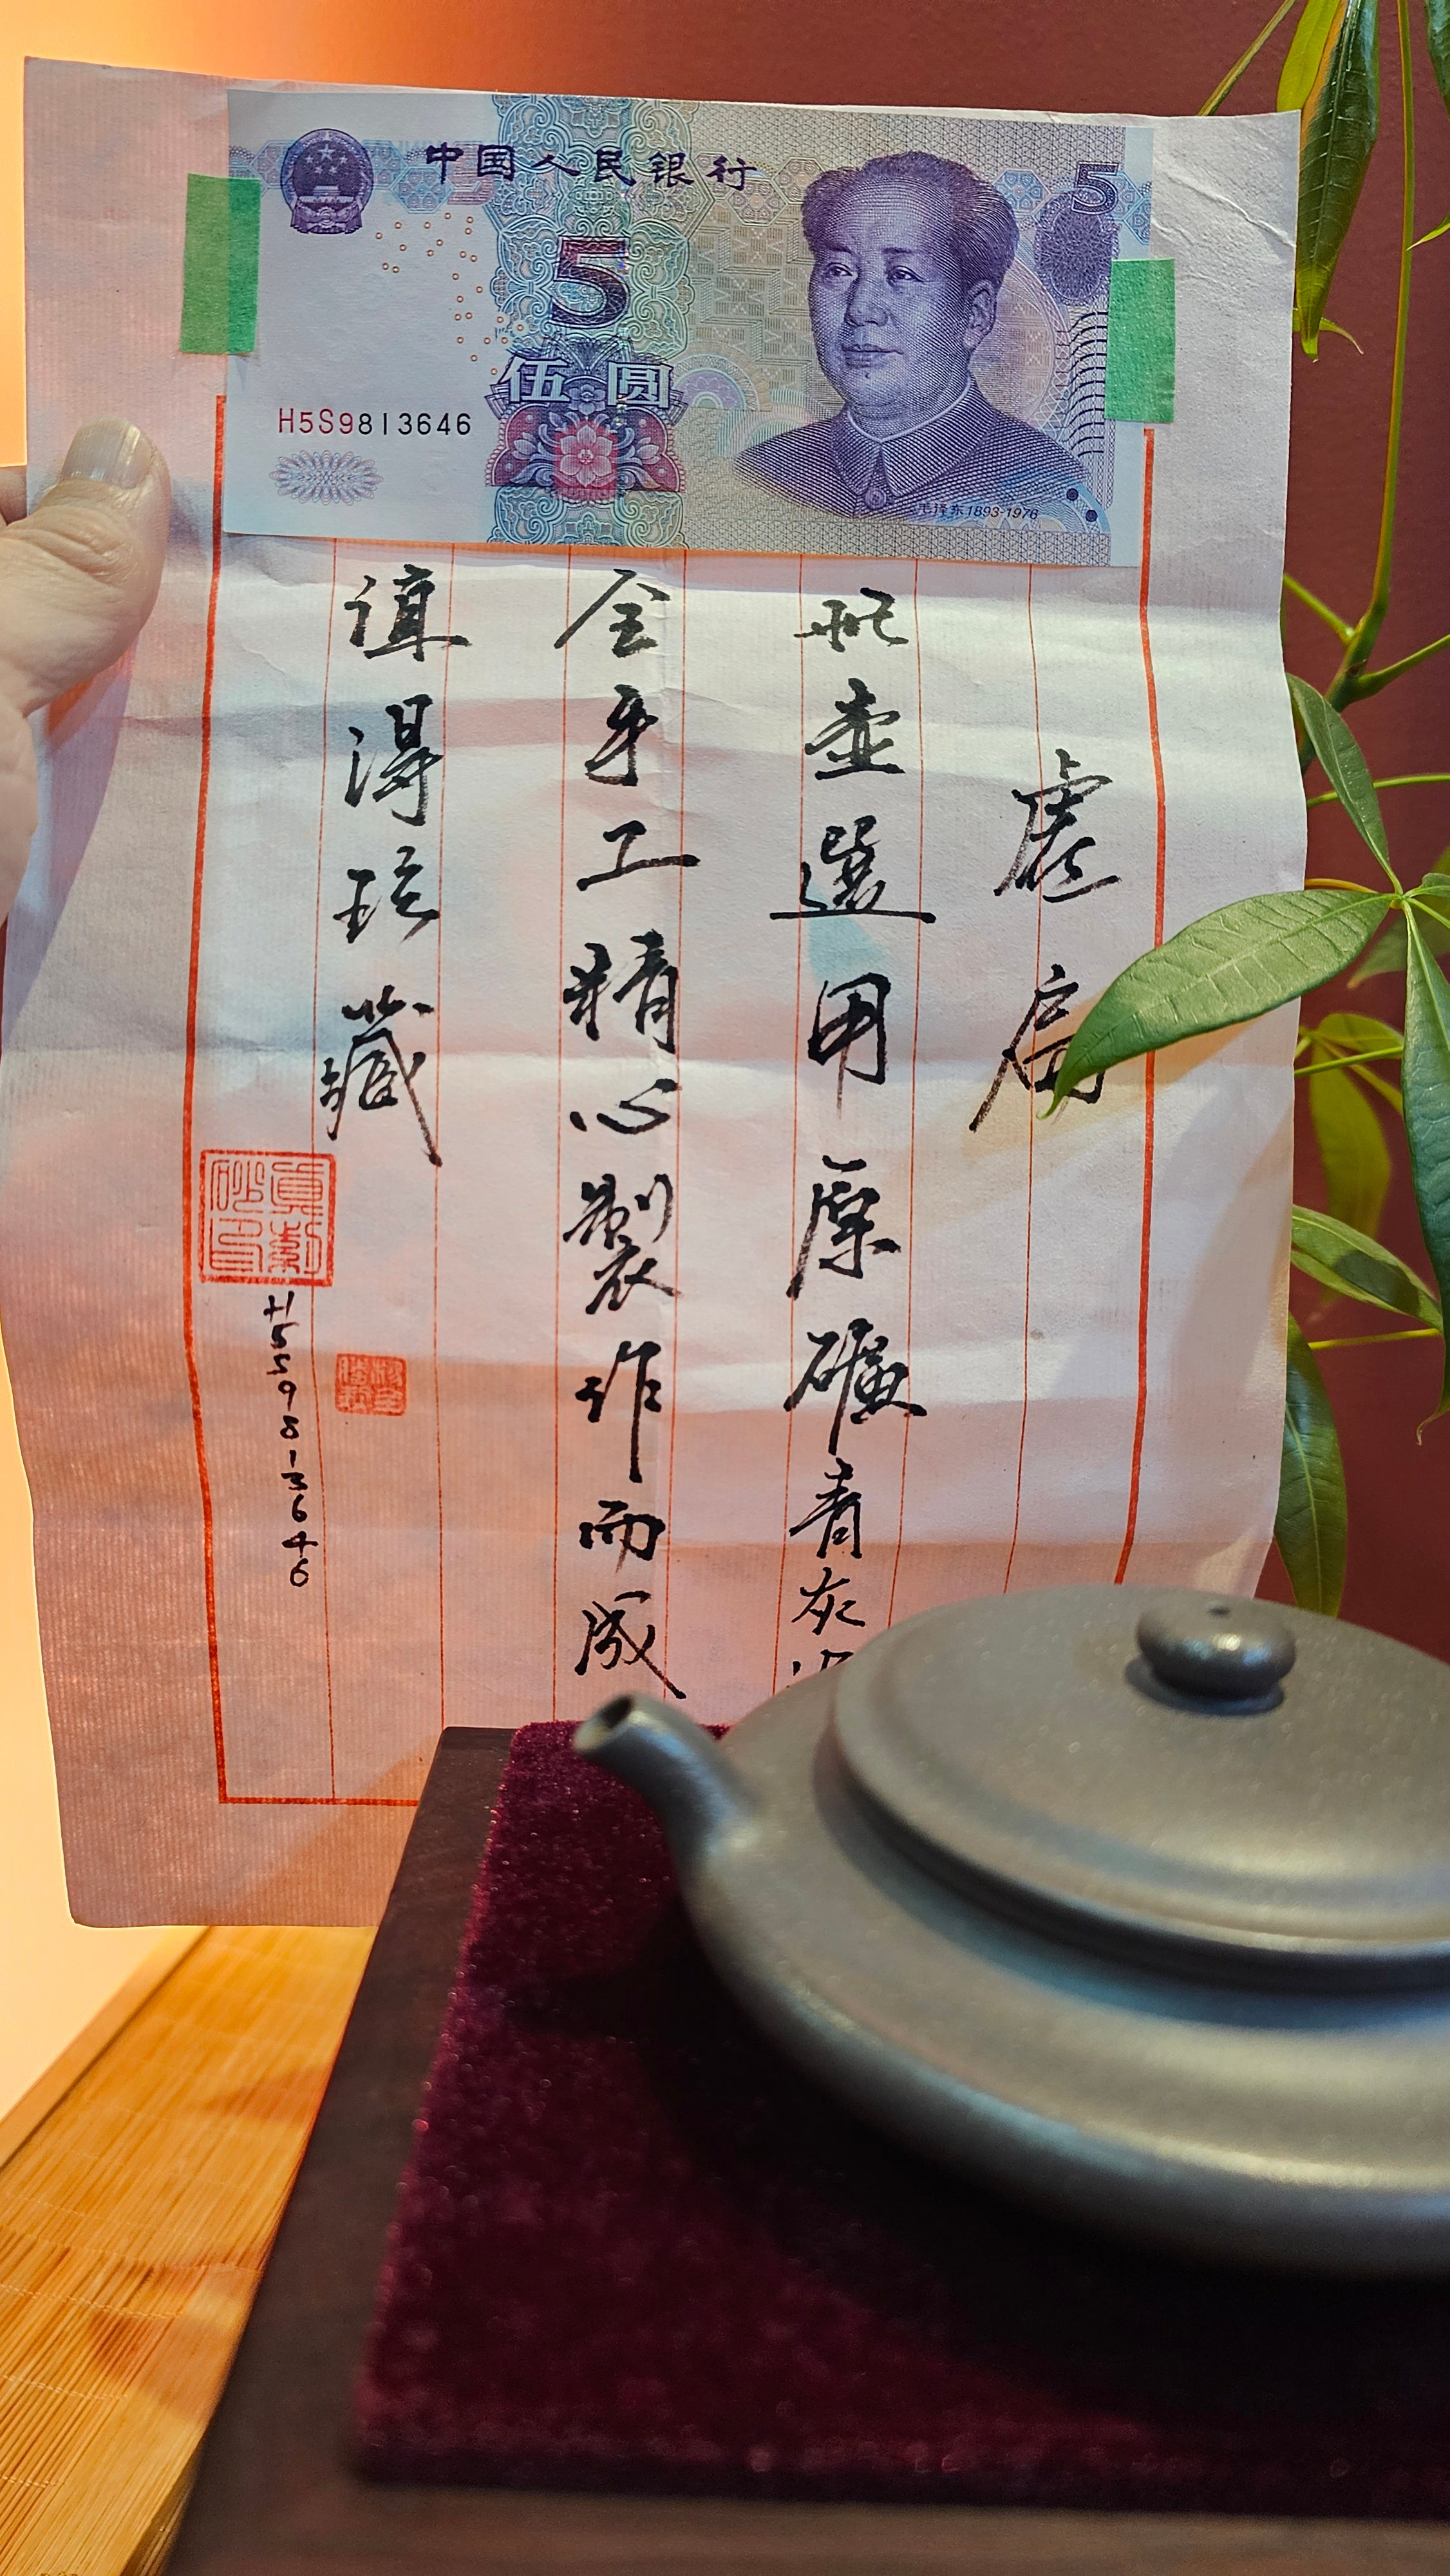 中国人民银行
5
5
伍圆
H5S9813646
毛泽东1893-1976
虚扁
此壶選用原礦青灰
全手工精心製作而成
值得珍藏
H5S9813646